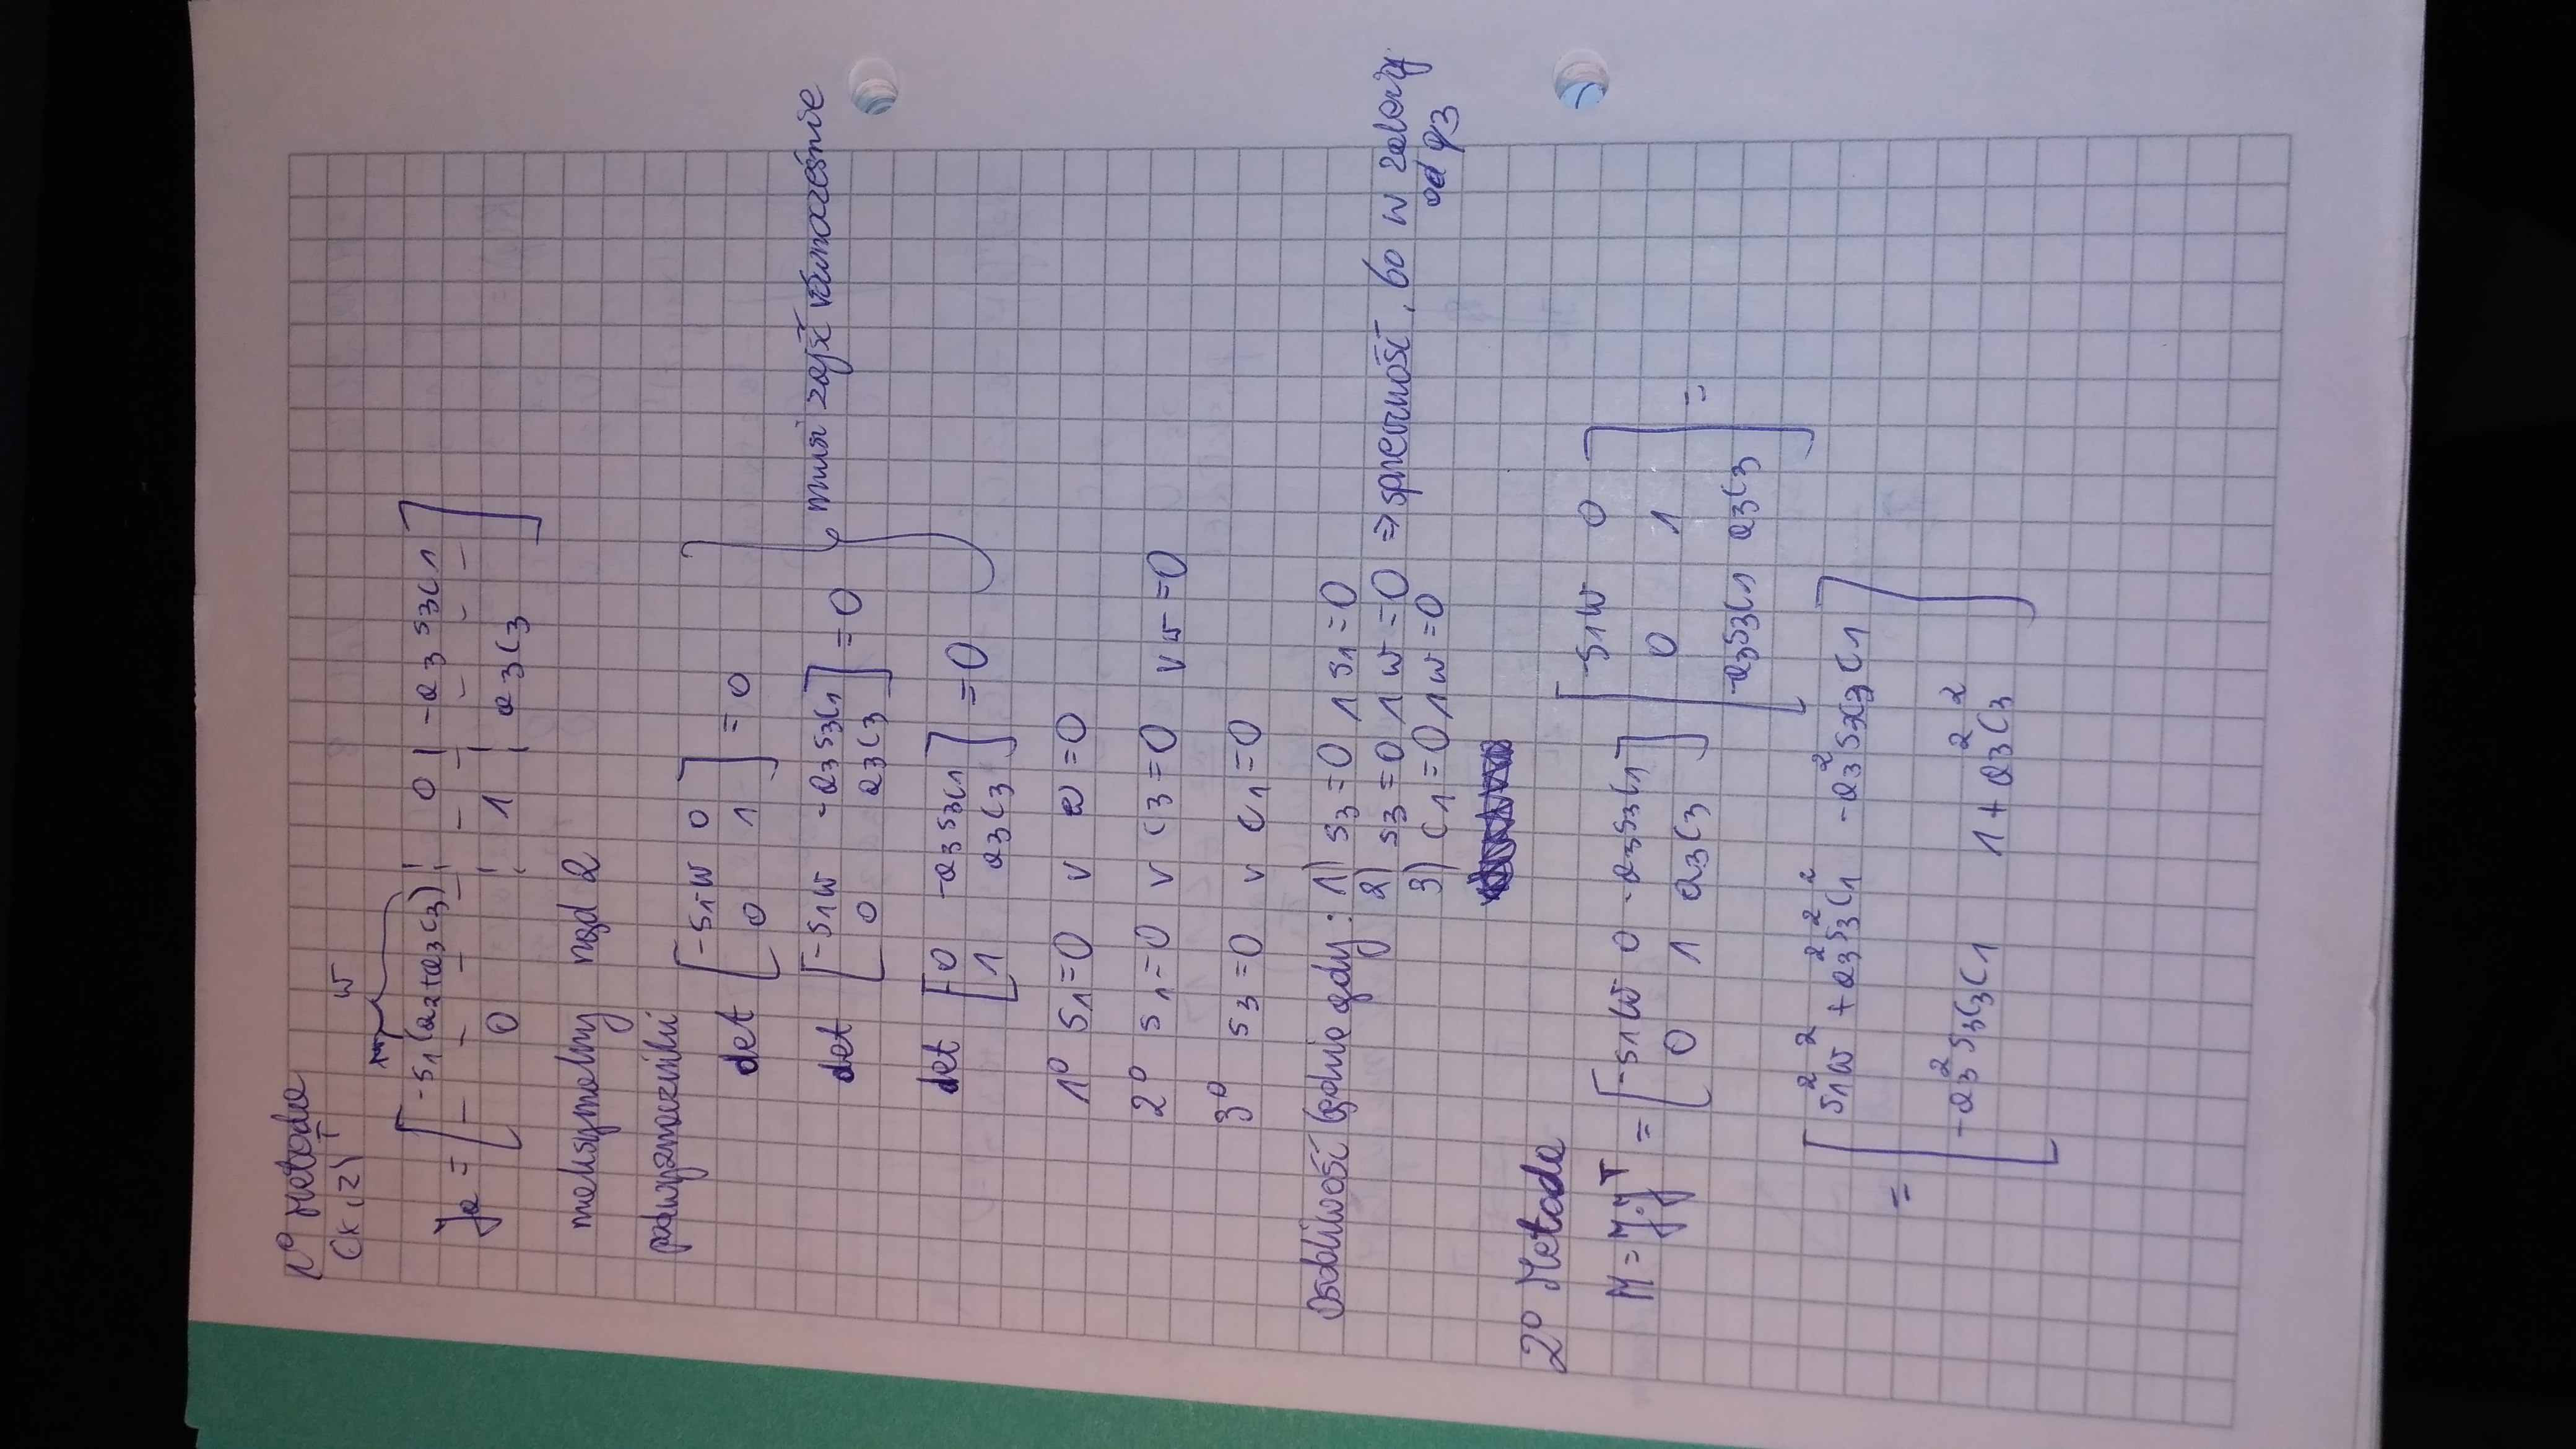 1° Metoda
(x,z)ᵀ w
Ja = [ -s1(a2+a3c3) | 0 | -a3s3c1 ]
0 | 1 | a3c3
maksymalny rząd 2
podwyznaczniki
det [ -s1w 0 ] = 0
0 1
det [ -s1w -a3s3c1 ] = 0
0 a3c3
det [ 0 -a3s3c1 ] = 0
1 a3c3
musi zajść równocześnie
1° s1=0 v w=0
2° s1=0 v c3=0 v w=0
3° s3=0 v c1=0
Osobliwość będzie gdy: 1) s3=0 ∧ s1=0
2) s3=0 ∧ w=0 ⇒ sprzeczność, bo w zależy od q3
3) c1=0 ∧ w=0
2° Metoda
M = J·Jᵀ = [ -s1w 0 -a3s3c1 ] [ -s1w 0 ] =
0 1 a3c3 0 1
-a3s3c1 a3c3
= [ s1²w² + a3²s3²c1² -a3²s3c3c1 ]
-a3²s3c3c1 1+a3²c3²